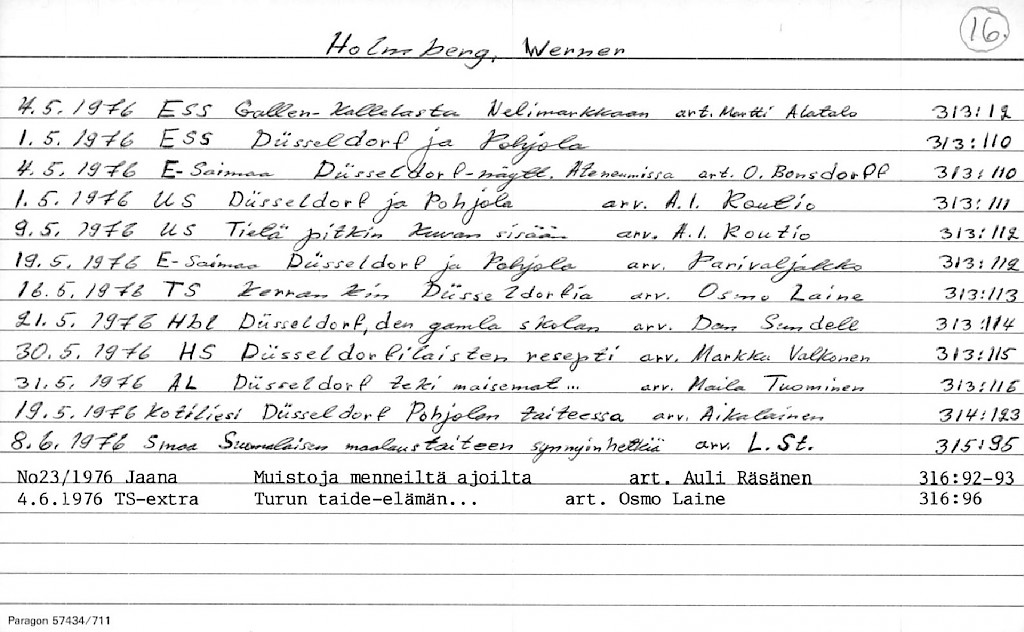 16.
Holmberg, Werner
4.5.1976 ESS Gallen-Kallelasta Nelimarkkaan art. Martti Alatalo 313:12
1.5.1976 ESS Düsseldorf ja Pohjola 313:110
4.5.1976 E-Saimaa Düsseldorf-näytt. Ateneumissa art. O. Bonsdorff 313:110
1.5.1976 US Düsseldorf ja Pohjola arv. A.I. Routio 313:111
9.5.1976 US Tietä pitkin kuvan sisään arv. A.I. Routio 313:112
19.5.1976 E-Saimaa Düsseldorf ja Pohjola arv. Parivaljakko 313:112
16.5.1976 TS Kerran kin Düsseldorfia arv. Osmo Laine 313:113
21.5.1976 Hbl Düsseldorf, den gamla skolan arv. Dan Sundell 313:114
30.5.1976 HS Düsseldorfilaisten resepti arv. Markku Valkonen 313:115
31.5.1976 AL Düsseldorf teki maisemat... arv. Maila Tuominen 313:116
19.5.1976 Kotiliesi Düsseldorf Pohjolan taiteessa arv. Aikalainen 314:123
8.6.1976 Smaa Suomalaisen maalaustaiteen synnyinhetkiä arv. L.St. 315:95
No23/1976 Jaana Muistoja menneiltä ajoilta art. Auli Räsänen 316:92-93
4.6.1976 TS-extra Turun taide-elämän... art. Osmo Laine 316:96
Paragon 57434/711